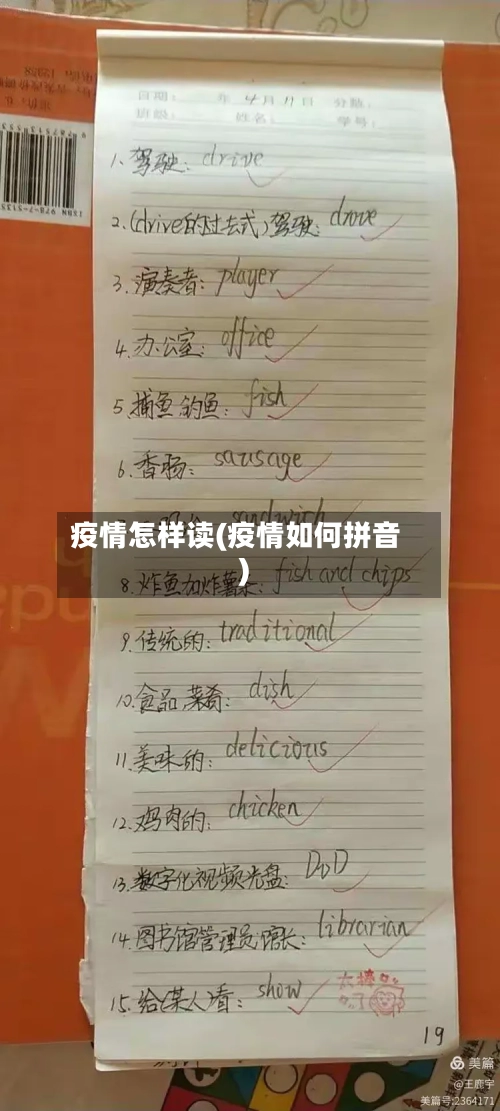 日期： 年 4月11日 分数：
班级： 姓名： 学号：
1、驾驶：drive
2、(drive的过去式)驾驶：drove
3、演奏者：player
4、办公室：office
5、捕鱼 钓鱼：fish
6、香肠：sausage
sandwich
疫情怎样读(疫情如何拼音
)
8、炸鱼加炸薯条：fish and chips
9、传统的：traditional
10、食品,菜肴：dish
11、美味的：delicious
12、鸡肉的：chicken
13、数字化视频光盘：DVD
14、图书馆管理员,馆长：librarian
15、给(某人)看：show
太棒
了
19
美篇
@王鹿宇
美篇号:2364171